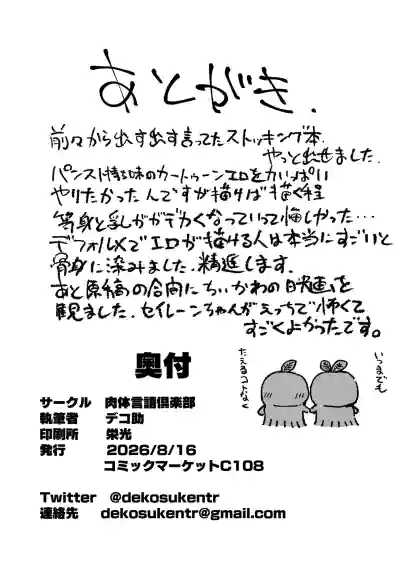 あとがき.
前々から出す出す言ってたストッキング本.
やっと出せました.
パンスト特有味のカートゥーンエロを力いっぱい
やりたかったんですが描けば描く程
等身と乳がデカくなっていって悔しかった…
デフォルメでエロが描ける人は本当にすごいと
骨身に染みました.精進します.
あと原稿の合間にちいかわの映画を
観ました.セイレーンちゃんがえっちで怖くて
すごくよかったです。
いつまでも
たえるコトなく
奥付
サークル 肉体言語倶楽部
執筆者 デコ助
印刷所 栄光
発行 2026/8/16
コミックマーケットC108
Twitter @dekosukentr
連絡先 dekosukentr@gmail.com